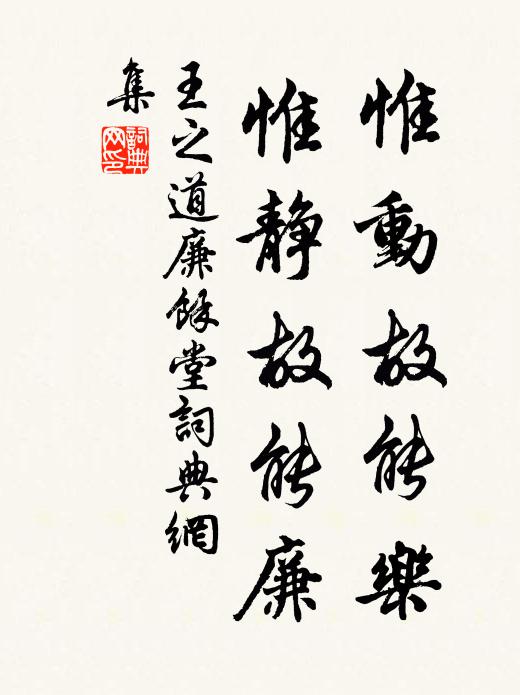 惟動故能樂
惟靜故能廉
王之道廉餘堂詞典網
集
詞典網印